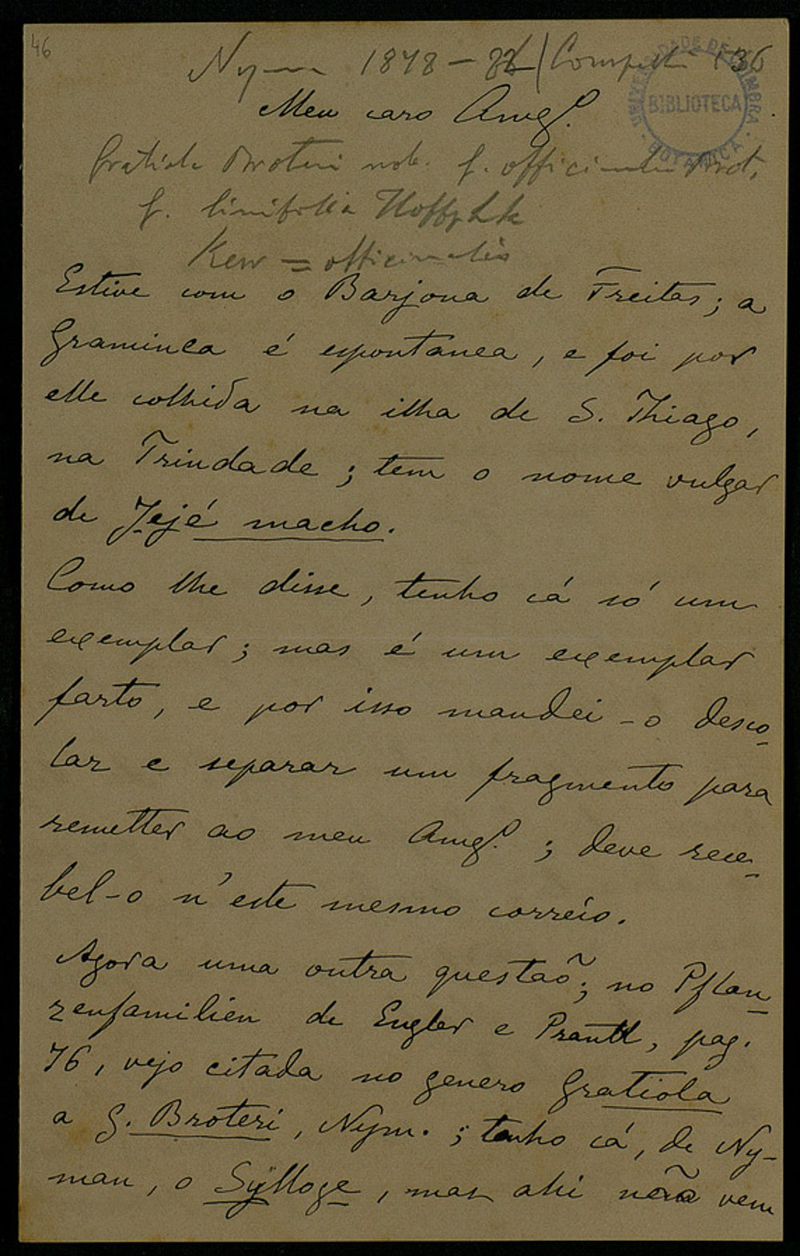 46
Nyman 1878-82/Conspectus 136
UNIVERSIDADE DE COIMBRA
BIBLIOTECA
BOTANICA
Meu caro Amgº.
Gratiola Broteri nob. G. officinalis Brot.
G. linifolia Hoffg Lk
Kew = officinalis
Estive com o Barjona de Freitas; a
Graminea é espontanea, e foi por
elle colhida na ilha de S. Thiago,
na Trindade; tem o nome vulgar
de Jejé macho.
Como lhe disse, tenho cá só um
exemplar; mas é um exemplar
farto, e por isso mandei-o desco-
lar e separar um fragmento para
remetter ao meu Amgº.; deve rece-
bel-o n'este mesmo correio.
Agora uma outra questaõ; no Pflan-
zenfamilien de Engler e Prantl, pag.
76, vejo citada no genero Gratiola
a G. Broteri, Nym.; tenho cá, de Ny-
man, o Sylloge, mas ahi não vem